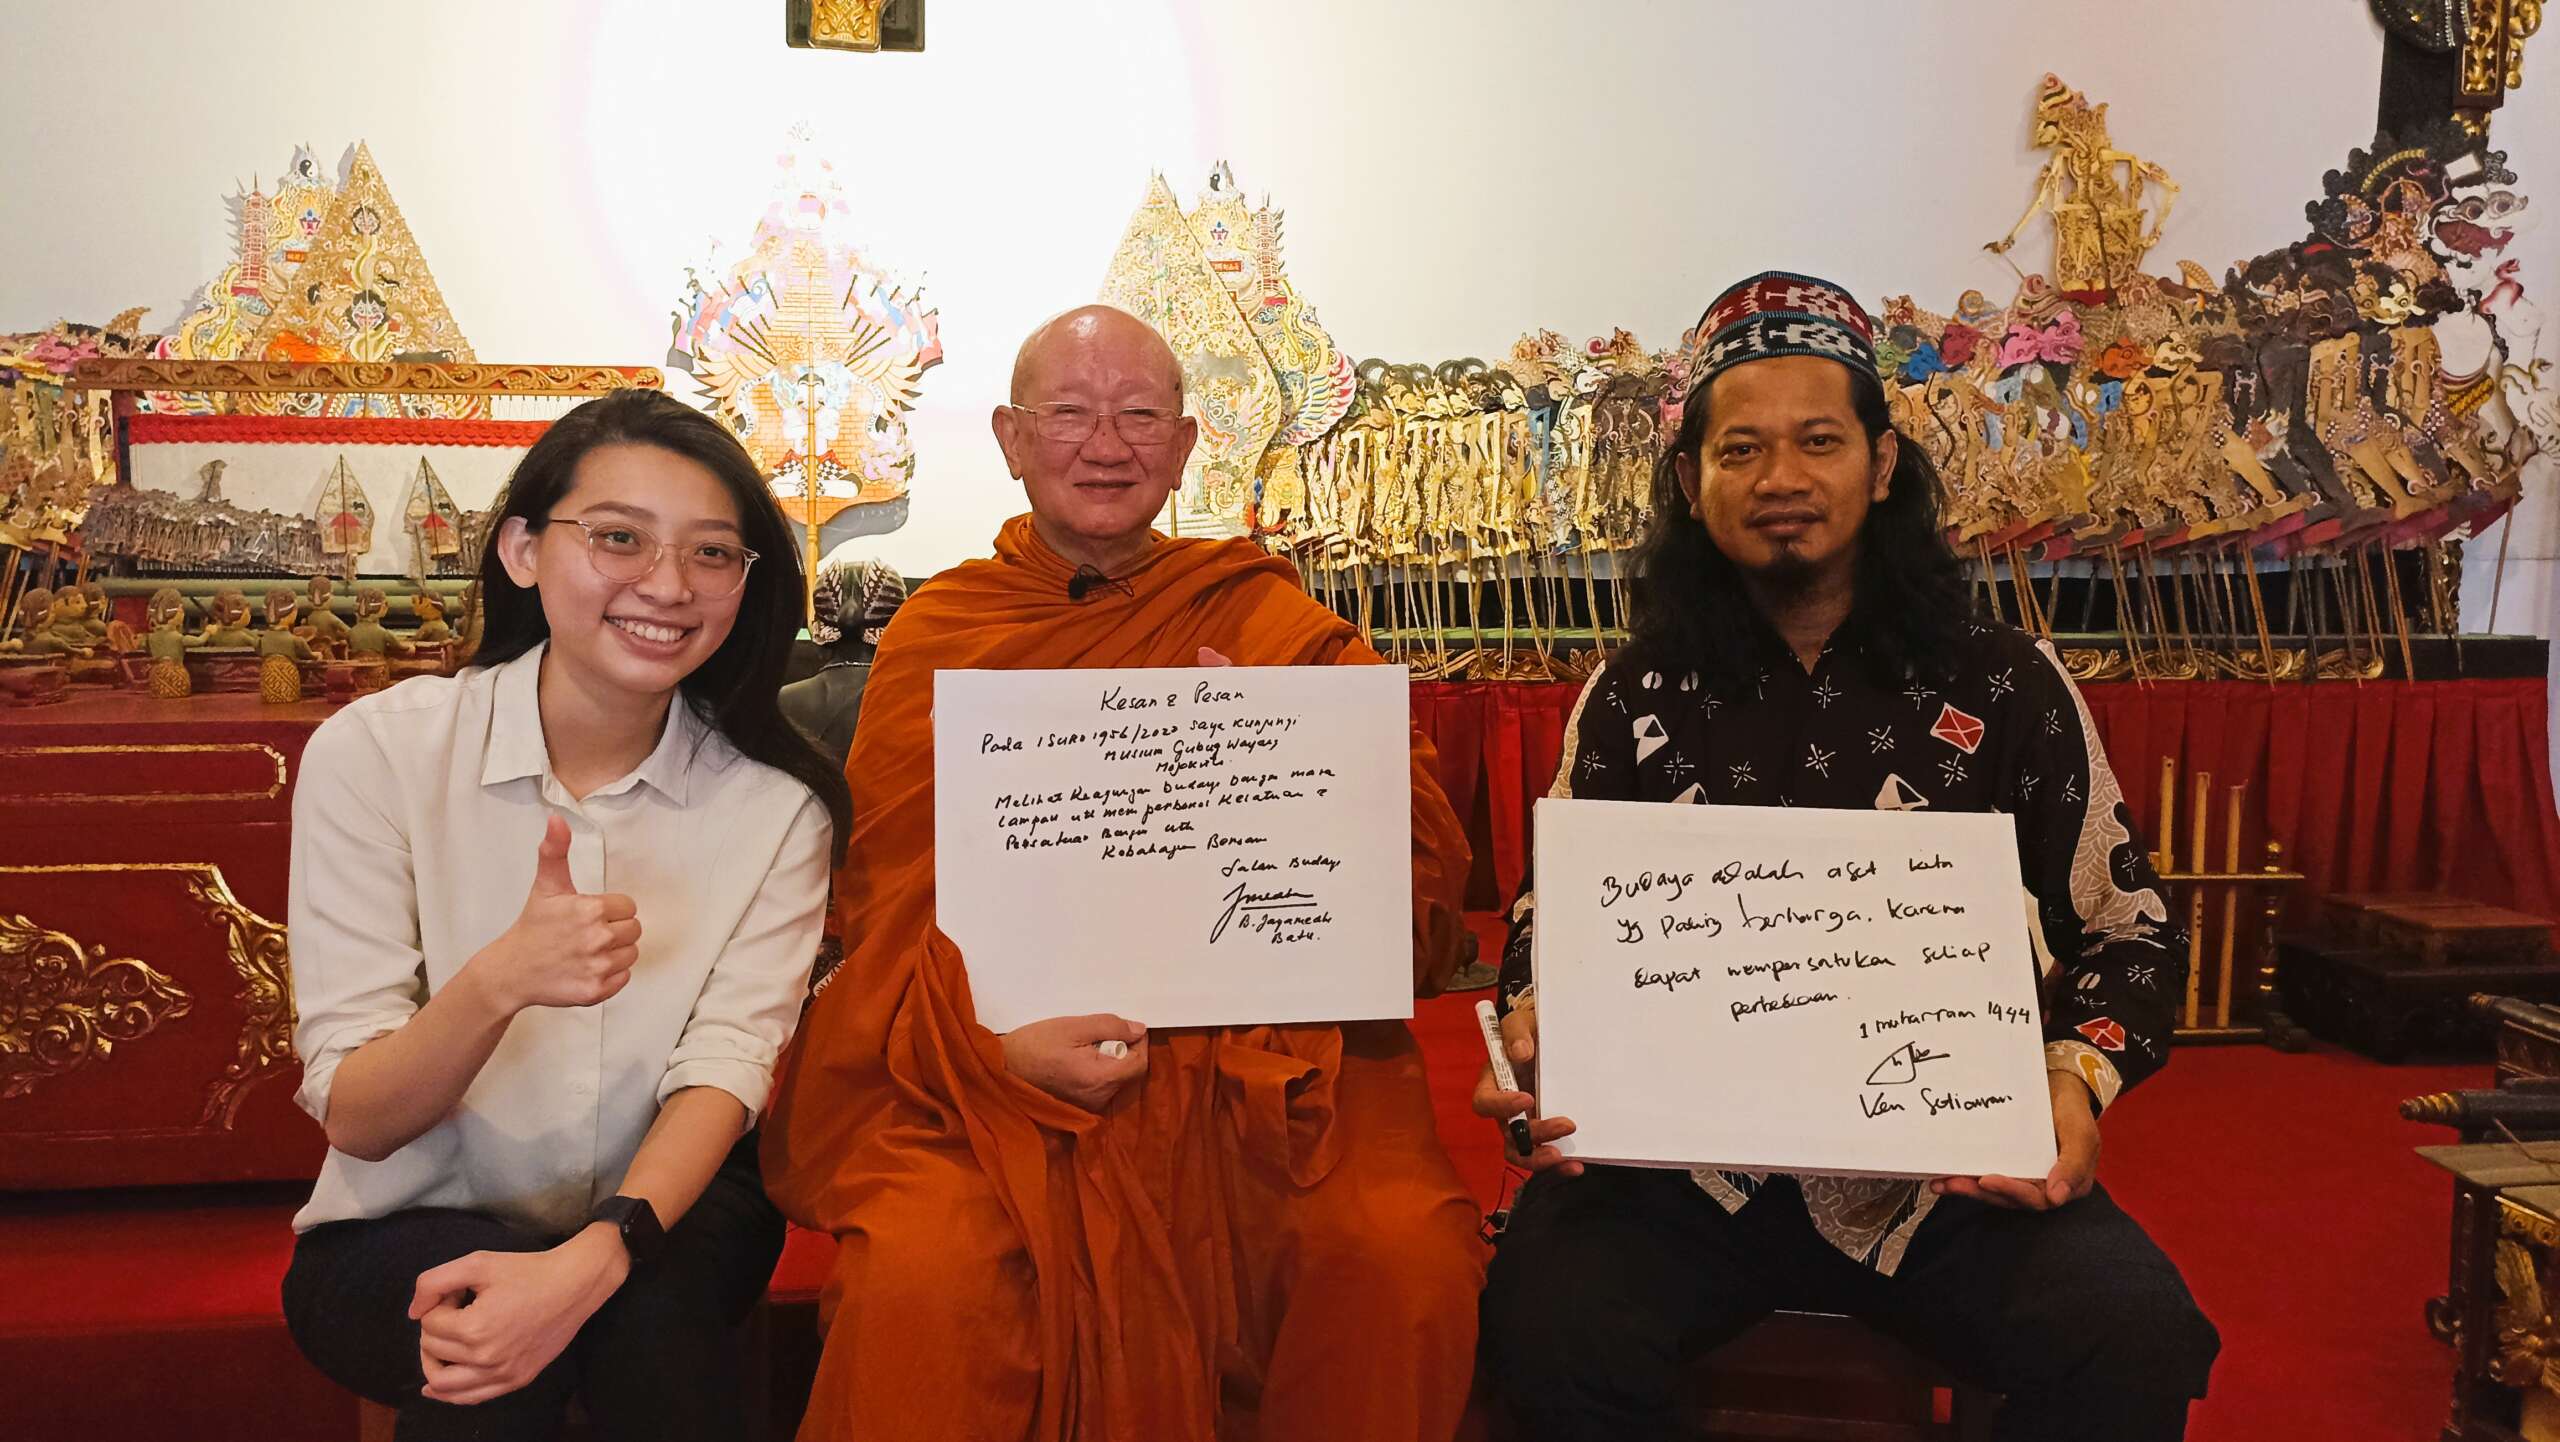 Kesan & Pesan
Pada 1 SURO 1956/2022 saya kunjungi
Musium Gubug Wayang
Melihat Keagungan Budaya Dengan masa
Lampau utk memperkokoh &
Persatuan Bangsa utk
Kebahagian Bersama
Salam Budaya
B. Jayamedho
Batu.
Budaya adalah aset kita
yg paling berharga. Karena
dapat mempersatukan setiap
perbedaan.
1 Muharram 1444
Ken Setiawan